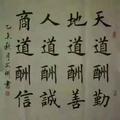 天道酬勤
地道酬善
人道酬誠
商道酬信
乙未秋月書